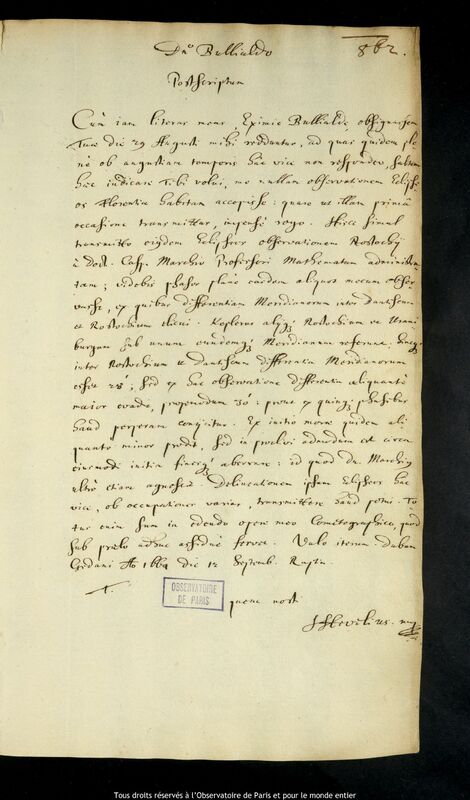 Dno Bullialdo
862.
Postscriptum
Cùm iam literas meas Eximie Bullialde obsignassem
Tuae die 29 Augusti mihi redduntur, ad quas quidem ple
nè ob angustiam temporis hac vice non respondeo, saltem
hac indicare Tibi volui, me nullam observationem Eclips
eos Florentiae habitam accepisse: quare ut illam primâ
occasione transmittas, impensè rogo. Hisce simul
transmitto eiusdem Eclipseos observationem Rostochij
à Doct. Casp. Marchio Professori Mathematum administra
tam; videbis phases planè easdem aliquot mecum obser
vasse, ex quibus differentiam Meridianorum inter Dantiscum
et Rostochium elicui. Keplerus alijq; Rostochium et Urani
burgum sub unum eundemq; Meridianum referunt,
inter Rostochium et Dantiscum differentia Meridianorum
esset 23', sed ex hac observatione differentia aliquantò
maior evadit, propemodum 30': prout ex quinq; phasibus
haud perperam conijcitur. Ex initio morae quidem ali
quantò minor prodit, sed in proclivi admodum est circa
eiusmodi initia finesq; aberrare: id quod Dn. Marchius
ultrò etiam agnoscit. Delineationem ipsam Eclipseos hac
vice, ob occupationes varias, transmittere haud potui. To
tus enim sum in edendo opere meo Cometographico, quod
sub praelo adhuc assiduè fervet. Vale iterum. Dabam
Gedani Ao 1664 die 12 Septemb. Raptim
T.
OBSERVATOIRE
DE PARIS
quem nosti
JHevelius. mp
Tous droits réservés à l'Observatoire de Paris et pour le monde entier